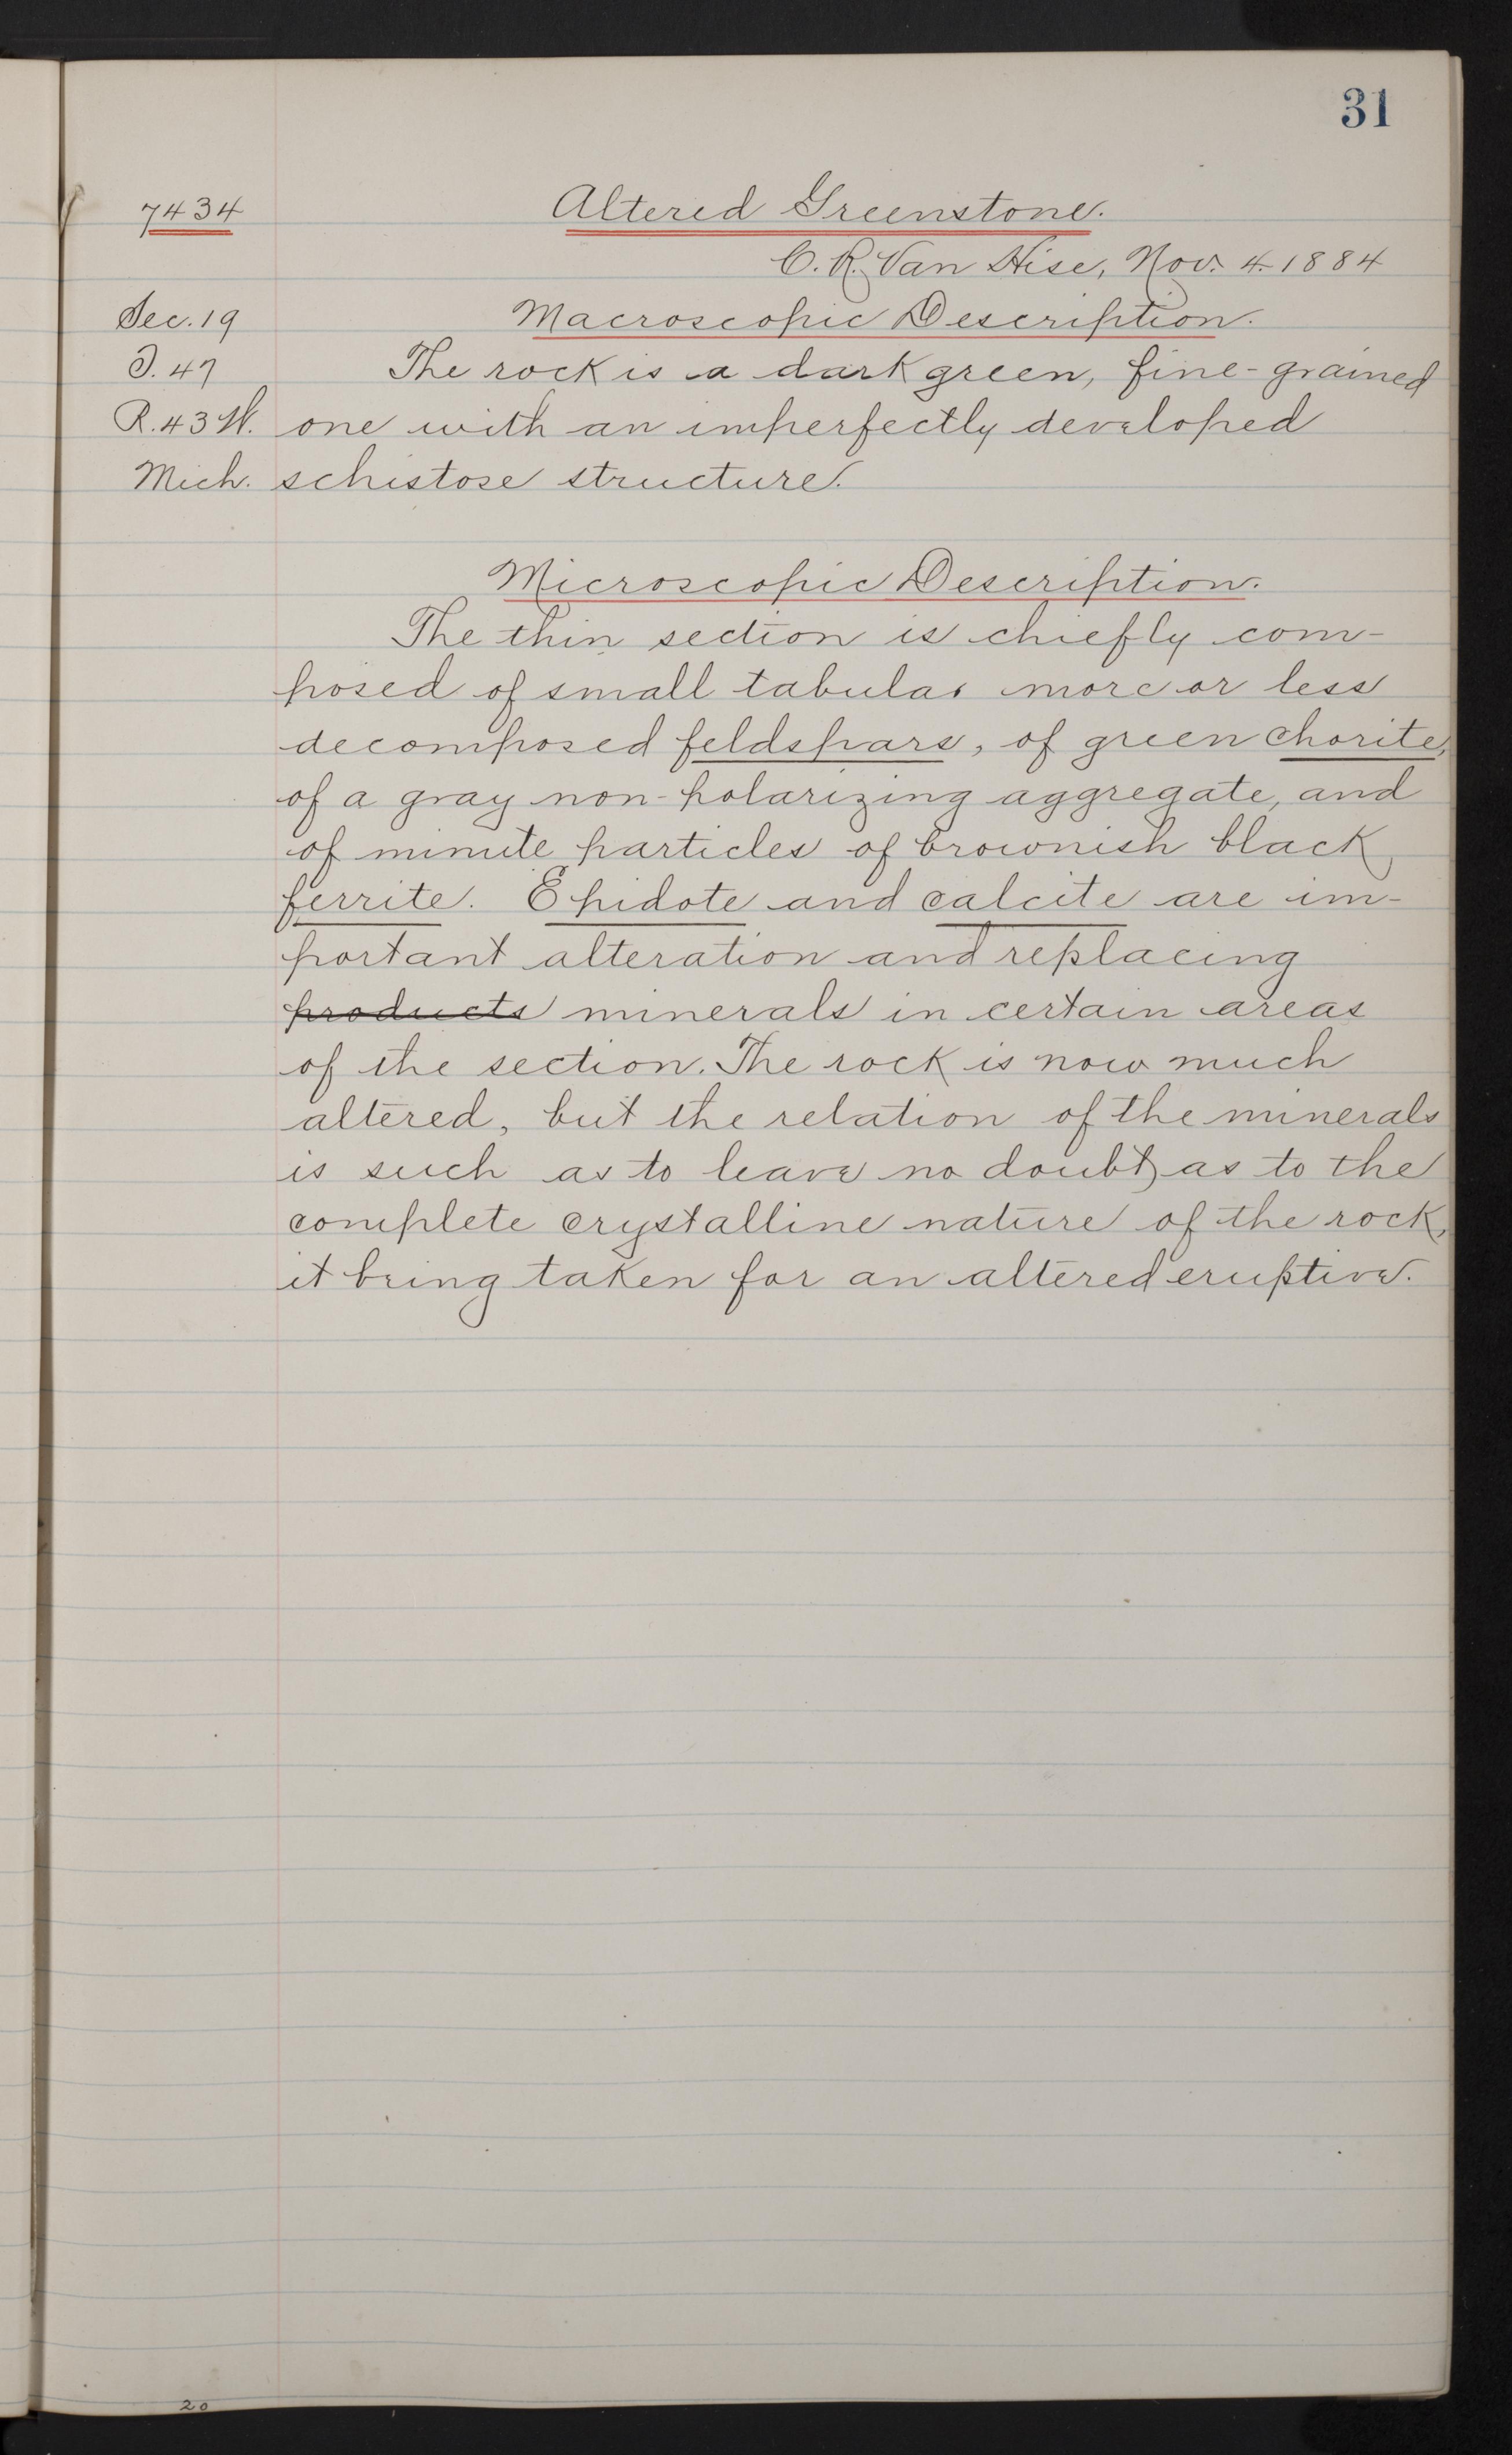 31
7434 Altered Greenstone.
C. R. Van Hise, Nov. 4. 1884
Sec. 19 Macroscopic Description.
T. 47 The rock is a dark green, fine-grained
R. 43 W. one with an imperfectly developed
Mich. schistose structure.
Microscopic Description.
The thin section is chiefly com-
posed of small tabular more or less
decomposed feldspars, of green chorite,
of a gray non-polarizing aggregate, and
of minute particles of brownish black
ferrite. Epidote and calcite are im-
portant alteration and replacing
products minerals in certain areas
of the section. The rock is now much
altered, but the relation of the minerals
is such as to leave no doubt as to the
complete crystalline nature of the rock,
it being taken for an altered eruptive.
20